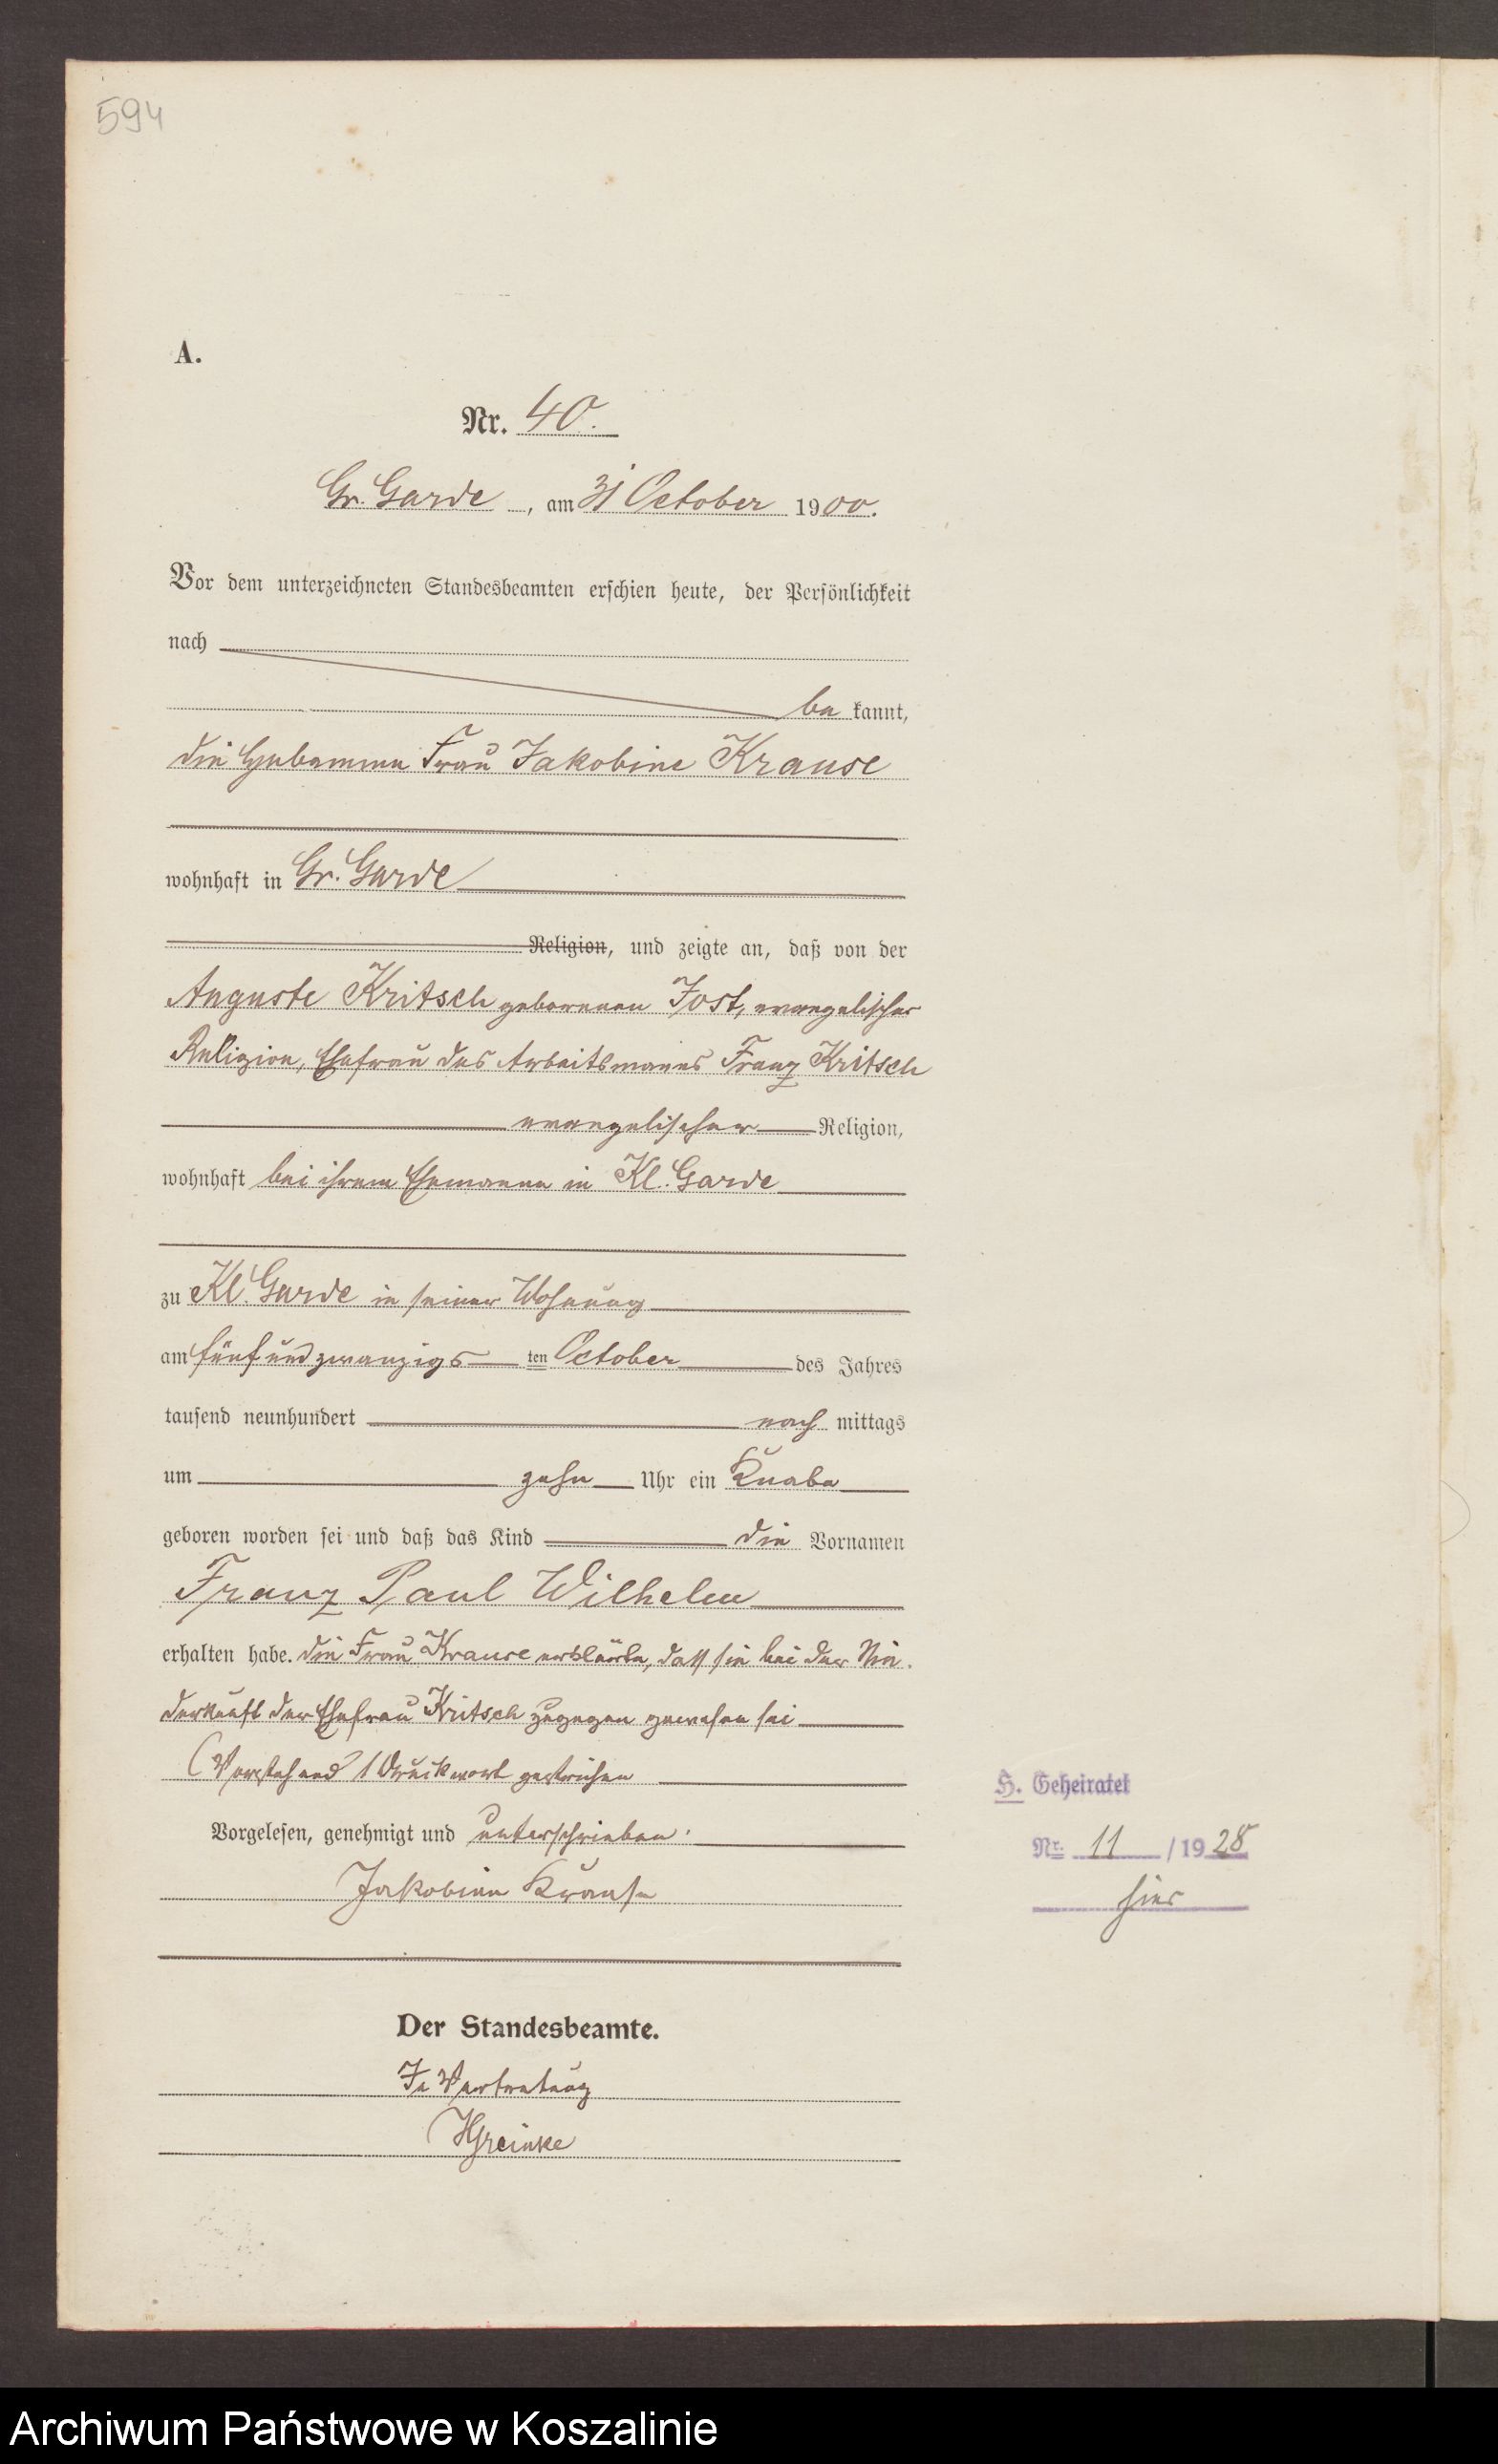 594
A.
Nr. 40.
Gr. Garde, am 31 October 1900.
Vor dem unterzeichneten Standesbeamten erschien heute, der Persönlichkeit
nach
be kannt,
die Hebamme Frau Jakobine Krause
wohnhaft in Gr. Garde
Religion, und zeigte an, daß von der
Auguste Kritsch geborenen Jost, evangelischer
Religion, Ehefrau des Arbeitsmannes Franz Kritsch
evangelischer Religion,
wohnhaft bei ihrem Ehemanne in Kl. Garde
zu Kl. Garde in seiner Wohnung
am fünfundzwanzigsten October des Jahres
tausend neunhundert nach mittags
um zehn Uhr ein Knabe
geboren worden sei und daß das Kind die Vornamen
Franz Paul Wilhelm
erhalten habe. die Frau Krause erklärte, daß sie bei der Nie.
derkunft der Ehefrau Kritsch zugegen gewesen sei
(Vorstehend 1 Druckwort gestrichen
Vorgelesen, genehmigt und unterschrieben.
Jakobine Krause
H. Geheiratet
Nr. 11 / 1928
hier
Der Standesbeamte.
In Vertretung
HGreinke
Archiwum Państwowe w Koszalinie